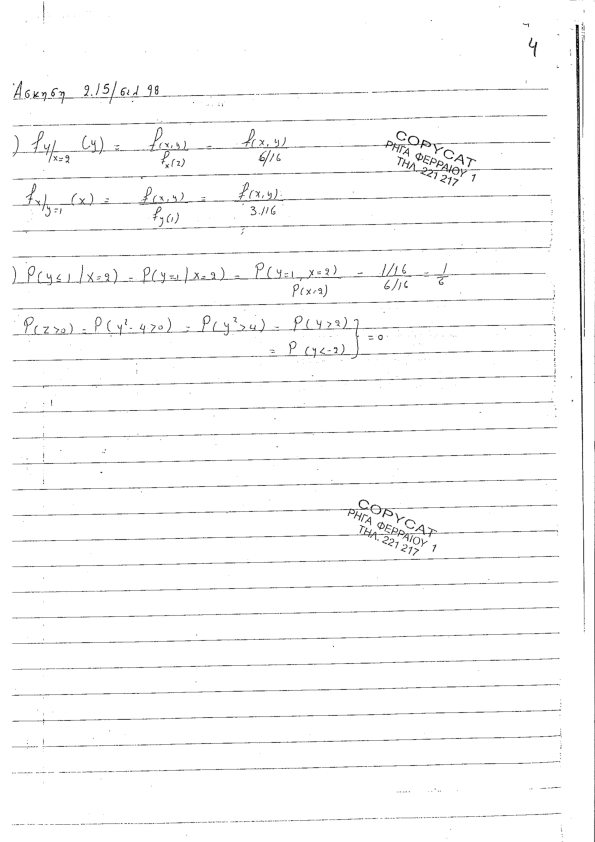 4
Άσκηση 2.15/σελ 98
) f_{Y/X=2} (y) = f(x,y) / f_x(2) = f(x,y) / 6/16
COPYCAT
ΡΗΓΑ ΦΕΡΡΑΙΟΥ 1
ΤΗΛ. 221 217
f_{X/Y=1} (x) = f(x,y) / f_y(1) = f(x,y) / 3/16
) P(y≤1/x=2) = P(y=1/x=2) = P(y=1, x=2) / P(x=2) = 1/16 / 6/16 = 1/6
P(z>0) = P(y²-4>0) = P(y²>4) = P(y>2) } = 0
= P(y<-2)
COPYCAT
ΡΗΓΑ ΦΕΡΡΑΙΟΥ 1
ΤΗΛ. 221 217